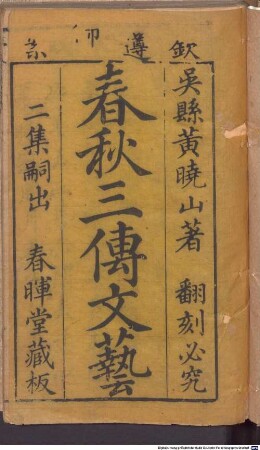 欽遵御案
吳縣黃曉山著 翻刻必究
春秋三傳文藝
二集嗣出 春暉堂藏板